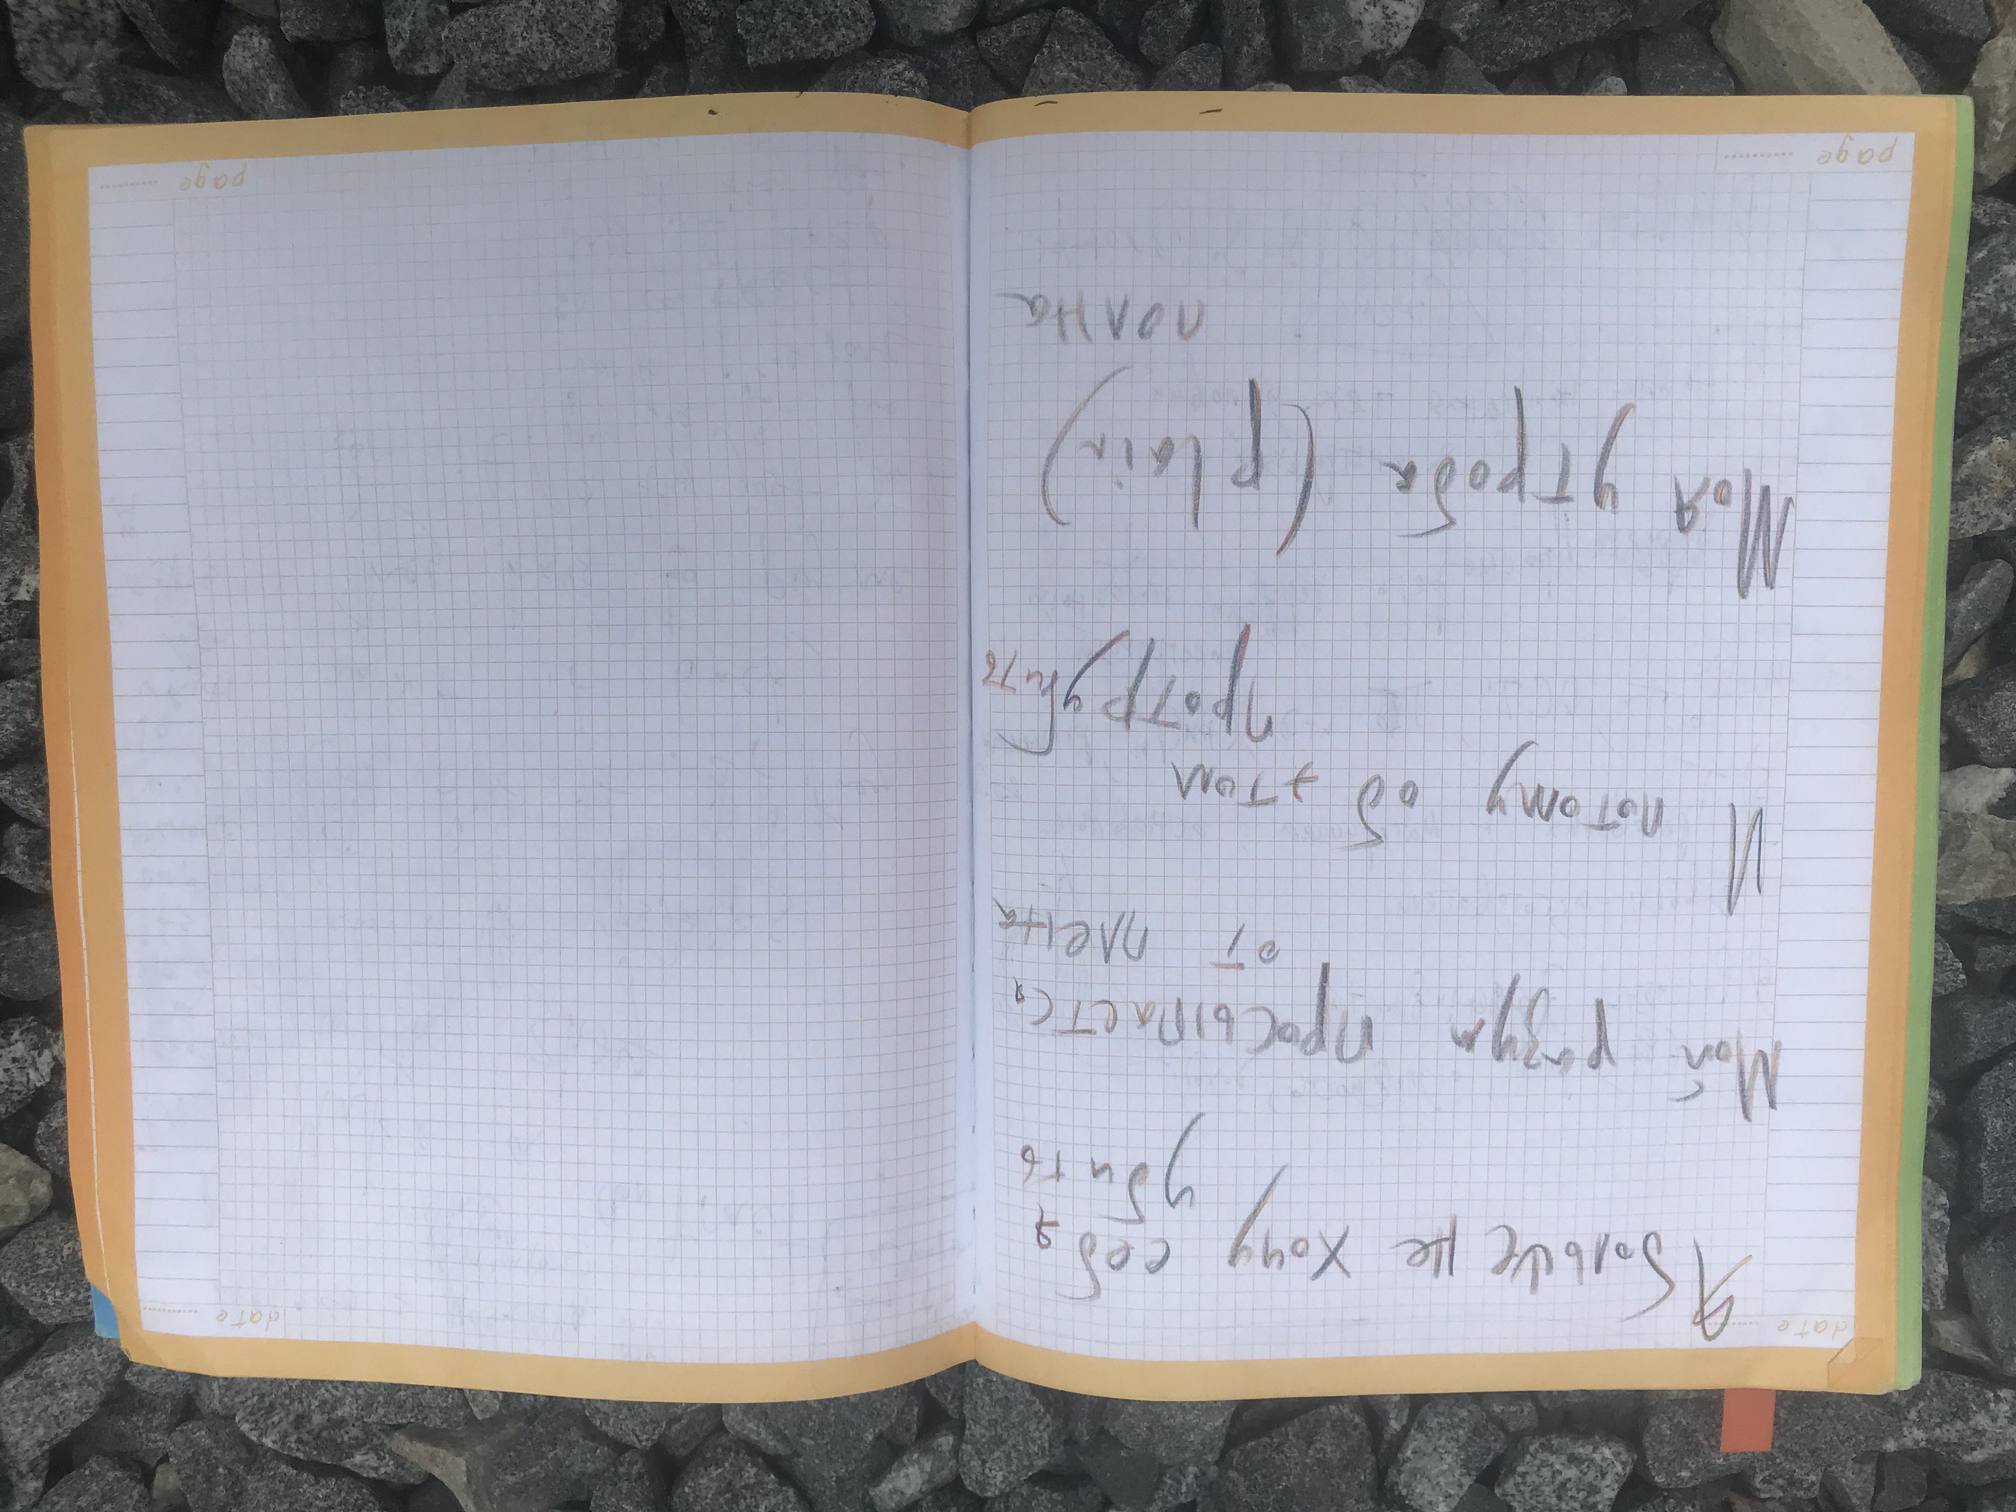 date
date
Я больше не хочу себя
убить
Мой разум просыпается
от плена
И потому об этом
протрубить
Моя утроба (plain)
полна
page
page